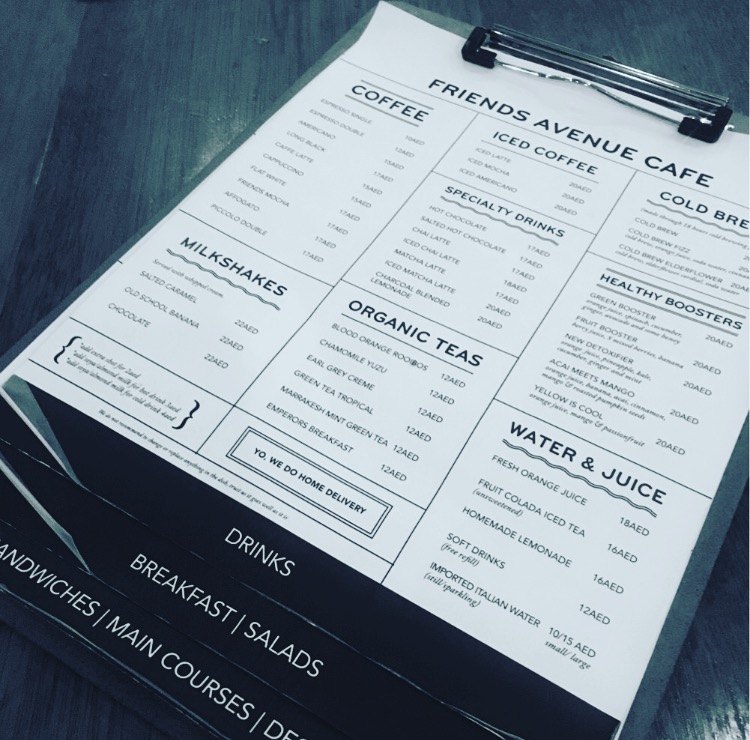 FRIENDS AVENUE CAFE
COFFEE
ESPRESSO SINGLE 10AED
ESPRESSO DOUBLE 12AED
AMERICANO
LONG BLACK
CAFFE LATTE
CAPPUCCINO
FLAT WHITE
FRIENDS MOCHA 17AED
AFFOGATO 17AED
PICCOLO DOUBLE 17AED
MILKSHAKES
Served with whipped cream
SALTED CARAMEL 22AED
OLD SCHOOL BANANA 22AED
CHOCOLATE 22AED
*add extra shot for 5aed
*add soya/almond milk for hot drink 3aed
*add soya/almond milk for cold drink 4aed
We do not recommend to change or replace anything in the dish, trust us it goes well as it is
ICED COFFEE
ICED LATTE 20AED
ICED MOCHA 20AED
ICED AMERICANO 20AED
SPECIALTY DRINKS
HOT CHOCOLATE 17AED
SALTED HOT CHOCOLATE 17AED
CHAI LATTE 17AED
ICED CHAI LATTE 18AED
MATCHA LATTE 17AED
ICED MATCHA LATTE 20AED
CHARCOAL BLENDED
LEMONADE 20AED
ORGANIC TEAS
BLOOD ORANGE ROOIBOS 12AED
CHAMOMILE YUZU 12AED
EARL GREY CREME 12AED
GREEN TEA TROPICAL 12AED
MARRAKESH MINT GREEN TEA 12AED
EMPERORS BREAKFAST 12AED
YO, WE DO HOME DELIVERY
COLD BRE
COLD BREW
COLD BREW FIZZ
COLD BREW ELDERFLOWER
HEALTHY BOOSTERS
GREEN BOOSTER 20AED
orange juice, spinach, cucumber,
ginger, almonds and some honey
FRUIT BOOSTER 20AED
berry juice, 3 mixed berries, banana
NEW DETOXIFIER 20AED
orange juice, pineapple, kale,
cucumber, ginger and mint
ACAI MEETS MANGO 20AED
orange juice, banana, acai, cinnamon,
mango & toasted pumpkin seeds
YELLOW IS COOL 20AED
orange juice, mango & passionfruit
WATER & JUICE
FRESH ORANGE JUICE 18AED
FRUIT COLADA ICED TEA 16AED
(unsweetened)
HOMEMADE LEMONADE 16AED
SOFT DRINKS 12AED
(free refill)
IMPORTED ITALIAN WATER 10/15 AED
(still/sparkling) small/large
DRINKS
BREAKFAST | SALADS
ANDWICHES | MAIN COURSES | DES